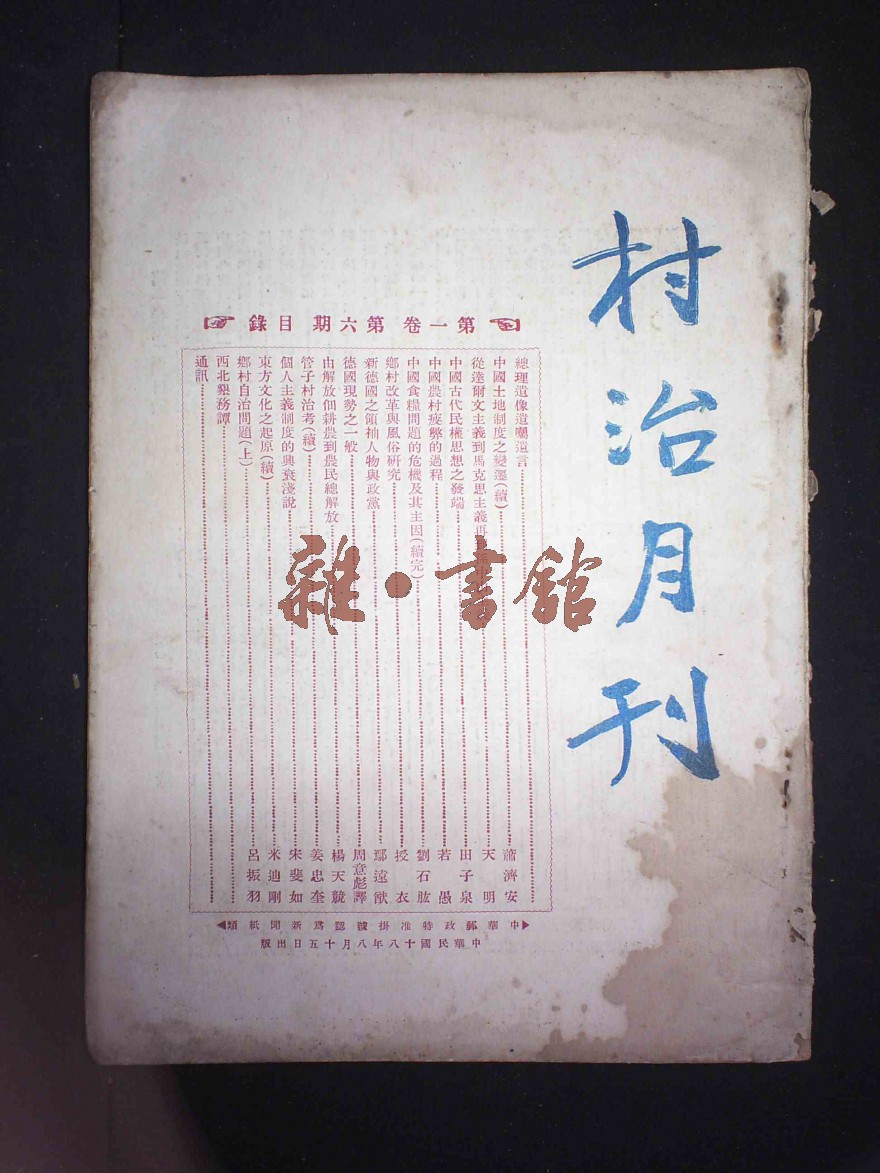 村治月刊
第一卷 第六期 目錄
總理遺像遺囑遺言
中國土地制度之變遷(續) 蕭濟安
從達爾文主義到馬克思主義再 天明
中國古代民權思想之發端 田子泉
中國農村疲弊的過程 若愚
中國食糧問題的危機及其主因(續完) 劉石肱
鄉村改革與風俗研究 授衣
新德國之領袖人物與政黨 鄢遠猷
德國現勢之一般 周意彪譯
由解放佃耕農到農民總解放 楊天競
管子村治考(續) 姜忠奎
個人主義制度的興衰淺說 宋斐如
東方文化之起原(續) 米迪剛
鄉村自治問題(上) 呂振羽
西北墾務譚
通訊
中華郵政特准掛號認爲新聞紙類
中華民國十八年八月十五日出版
雜·書館